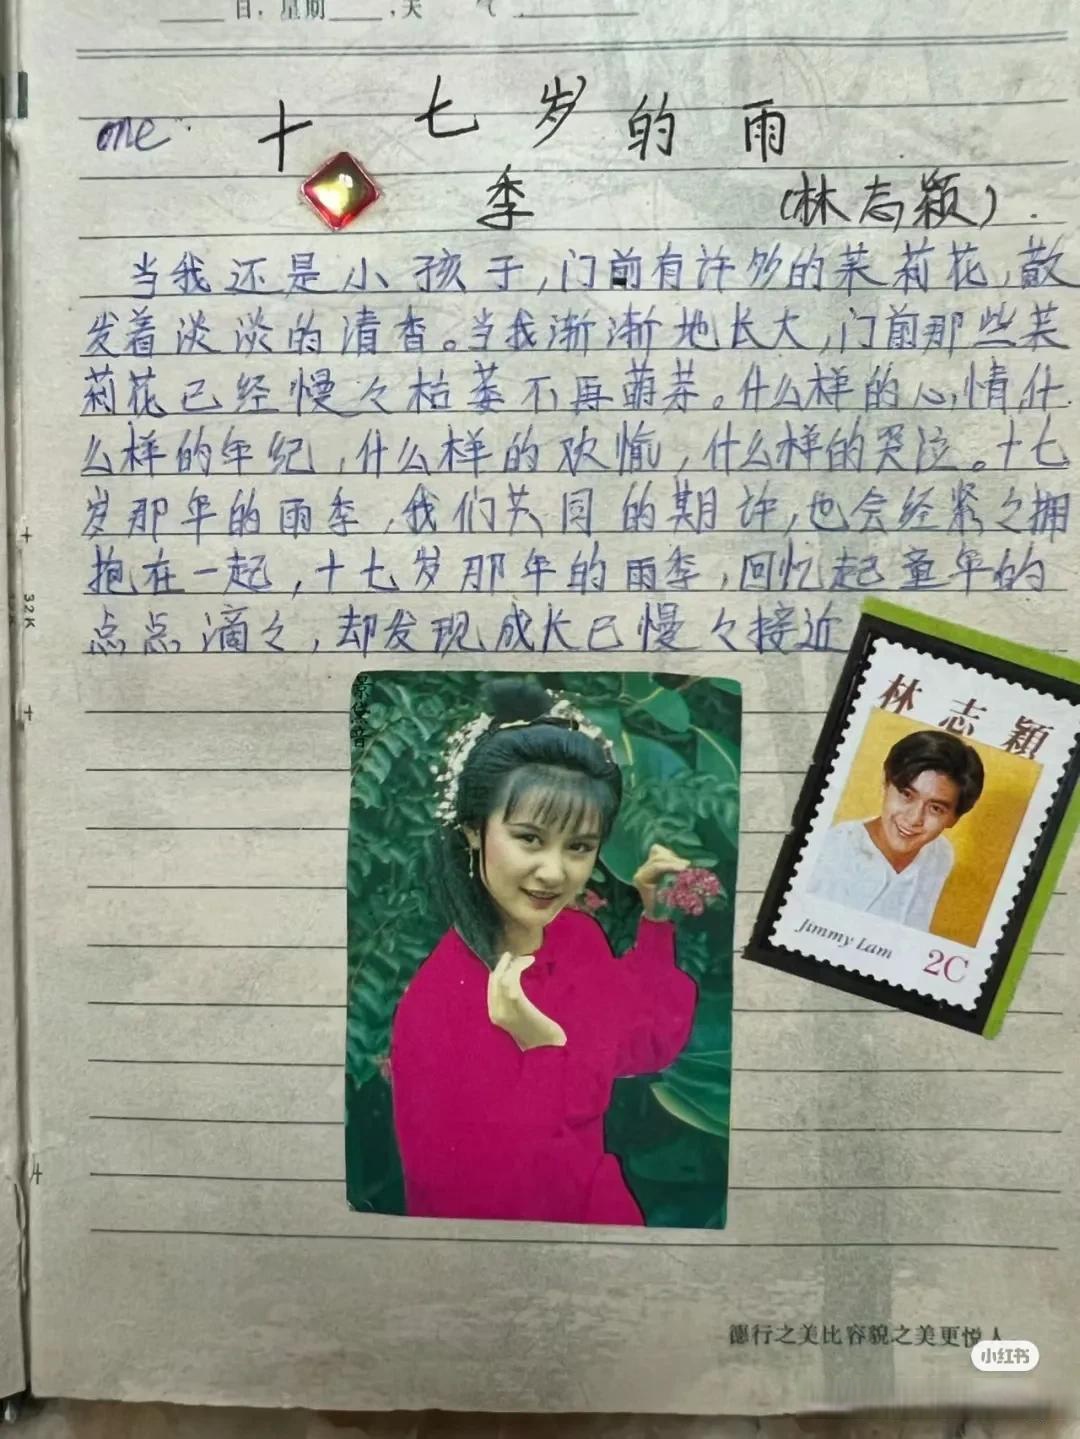 日，星期 ，天 气
one
十七岁的雨
季 （林志颖）.
当我还是小孩子，门前有许多的茉莉花，散
发着淡淡的清香。当我渐渐地长大，门前那些茉
莉花已经慢々枯萎不再萌芽。什么样的心情什
么样的年纪，什么样的欢愉，什么样的哭泣。十七
岁那年的雨季，我们共同的期许，也会经紧々拥
抱在一起，十七岁那年的雨季，回忆起童年的
点点滴々，却发现成长已慢々接近
林志穎
Jimmy Lam
2C
32K
德行之美比容貌之美更悦人
小红书